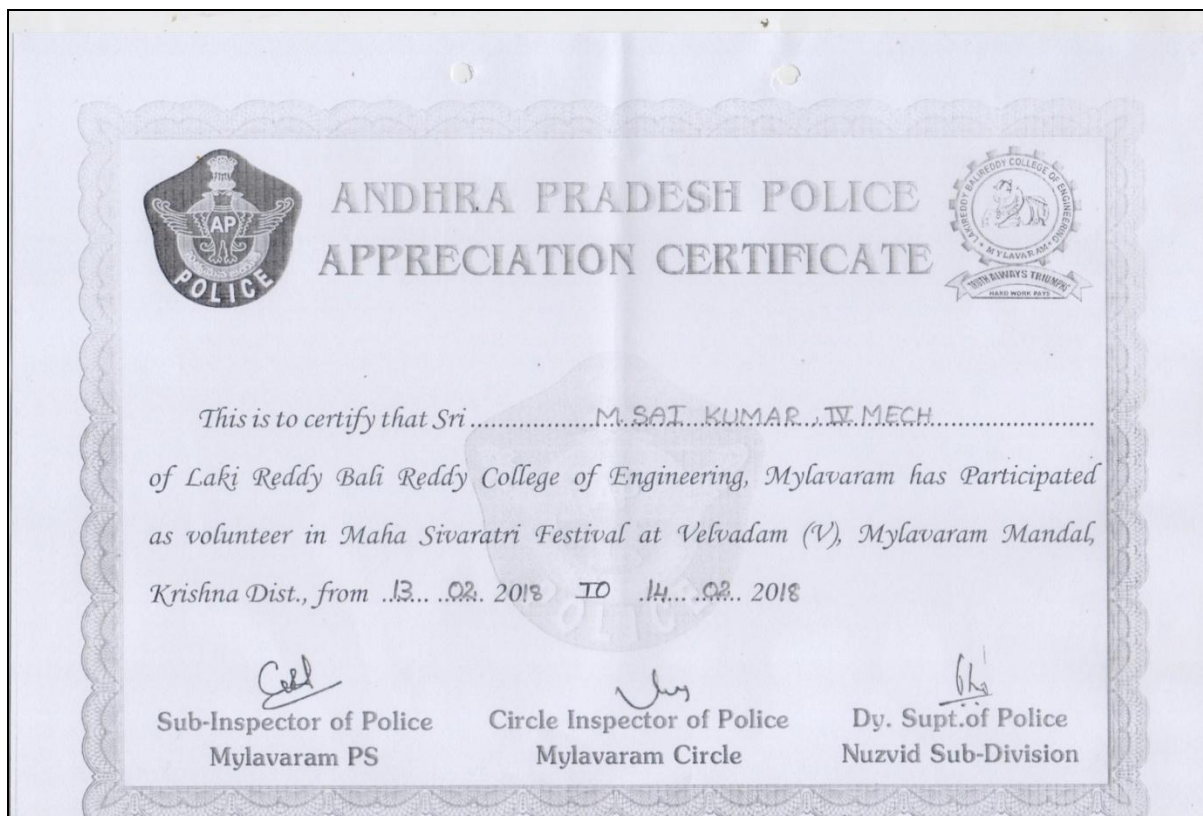 ANDHRA PRADESH POLICE
APPRECIATION CERTIFICATE
AP
POLICE
LAKIREDDY BALIREDDY COLLEGE OF ENGINEERING
* MYLAVARAM *
TRUTH ALWAYS TRIUMPHS
HARD WORK PAYS
This is to certify that Sri ..................M.SAI KUMAR., IV MECH..........................
of Laki Reddy Bali Reddy College of Engineering, Mylavaram has Participated
as volunteer in Maha Sivaratri Festival at Velvadam (V), Mylavaram Mandal,
Krishna Dist., from ..13... ..02.. 2018 TO ..14... ..02.. 2018
POLICE
Sub-Inspector of Police Circle Inspector of Police Dy. Supt.of Police
Mylavaram PS Mylavaram Circle Nuzvid Sub-Division